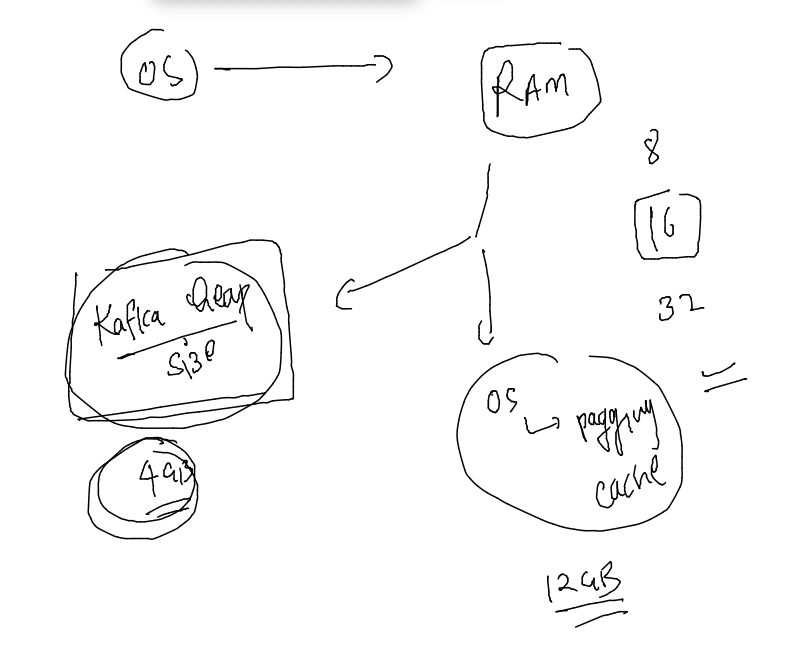 OS
RAM
8
16
32
Kafka Heap
size
4GB
OS
pagging
cache
12GB